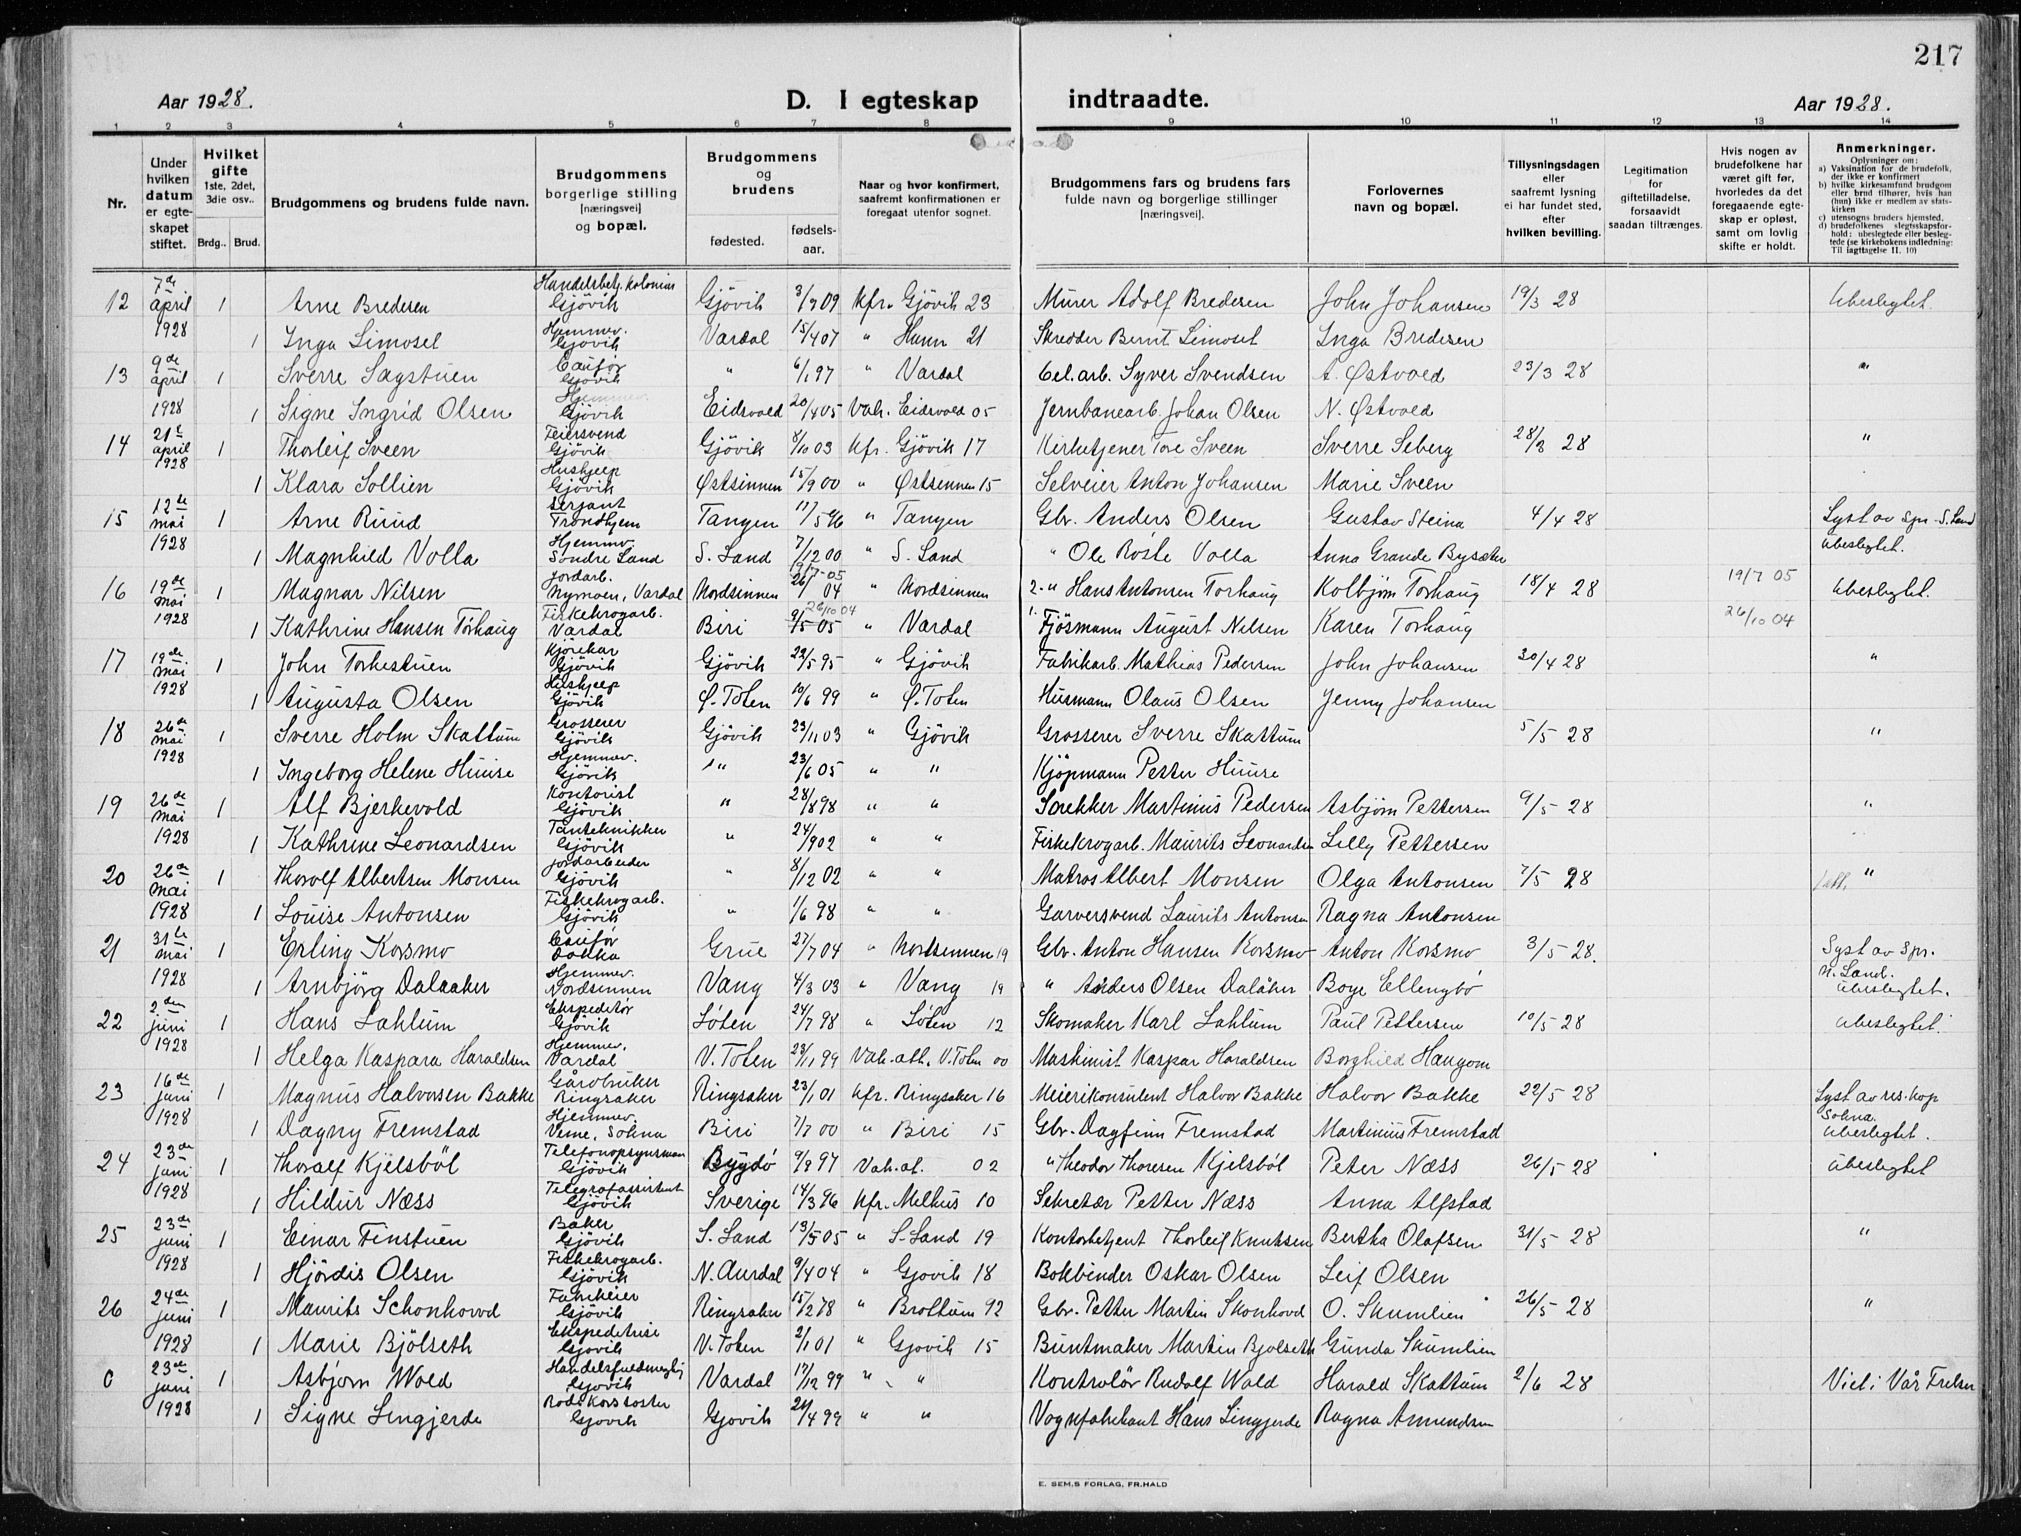 217
Aar 1928.
D. I egteskap indtraadte.
Aar 1928.
1 2 3 4 5 6 7 8 9 10 11 12 13 14
Nr.
Under hvilken datum er egteskapet stiftet.
Hvilket gifte 1ste, 2det, 3die osv..
Brdg.. Brud.
Brudgommens og brudens fulde navn.
Brudgommens borgerlige stilling [næringsvei] og bopæl.
Brudgommens og brudens
fødested.
fødselsaar.
Naar og hvor konfirmert, saafremt konfirmationen er foregaat utenfor sognet.
Brudgommens fars og brudens fars fulde navn og borgerlige stillinger [næringsvei].
Forlovernes navn og bopæl.
Tillysningsdagen eller saafremt lysning ei har fundet sted, efter hvilken bevilling.
Legitimation for giftetilladelse, forsaavidt saadan tiltrænges.
Hvis nogen av brudefolkene har været gift før, hvorledes da det foregaaende egteskap er opløst, samt om lovlig skifte er holdt.
Anmerkninger.
Oplysninger om:
a) Vaksination for de brudefolk, der ikke er konfirmert
b) hvilke kirkesamfund brudgom eller brud tilhører, hvis han (hun) ikke er medlem av statskirken
c) utensogns bruders hjemsted.
d) brudefolkenes slegtsskapsforhold: ubeslegtede eller beslegtede (se kirkebokens indledning: Til iagttagelse II. 10)
12 7de april 1 Arne Bredesen Handelsbetj. Kolonial Gjövik Gjövik 3/7 09 Kfr. Gjövik 23 Murer Adolf Bredesen John Johansen 19/3 28 Ubeslegtet.
1928 1 Inga Simoset Hjemmev. Gjövik Vardal 15/4 07 " Hunn 21 Skredder Bernt Simoset Inga Bredesen
13 9de april 1 Sverre Sagstuen Gjövik " 6/1 97 " Vardal Cel.arb. Syver Svendsen A. Østvold 23/3 28 "
1928 1 Signe Ingrid Olsen Hjemmev. Gjövik Eidsvold 20/4 05 Vak. Eidsvold 05 Jernbanearb. Johan Olsen N. Østvold
14 21de april 1928 1 Thorleif Sveen Feiersvend Gjövik Gjövik 8/10 03 Kfr. Gjövik 17 Kirketjener Tore Sveen Sverre Seberg 28/3 28 "
1 Klara Sollien Hushjelp Gjövik Østsinnen 15/9 00 " Østsinnen 15 Selveier Anton Johansen Marie Sveen
15 12te mai 1 Arne Ruud Serjant Trondhjem Tangen 11/5 " Tangen Gbr. Anders Olsen Gustav Steina 4/4 28 Lyst av Spr. S. Land
1928 1 Magnhild Volla Hjemmev. Söndre Land S. Land 7/12 00 " S. Land " Ole Röste Volla Anna Grande Bysæter Ubeslegtet.
16 19de mai 1 Magnar Nilsen Jordarb. Nymoen, Vardal Nordsinnen 19/7-05 26/ 04 " Nordsinnen 2. " Hans Antonsen Torhaug Kolbjörn Torhaug 18/4 28 19/7 05 Ubeslegtet.
1928 1 Kathrine Hansen Torhaug Fiskekrogarb. Vardal Biri 26/10 04 9/5 05 " Vardal 1. Fjösmann August Nilsen Karen Torhaug 26/10 04
17 19de mai 1 John Torkestuen Kjörekar Gjövik Gjövik 22/5 95 " Gjövik Fabrikarb. Mathias Pedersen John Johansen 30/4 28 "
1928 1 Augusta Olsen Hushjelp Gjövik Ø. Toten 10/6 99 " Ø. Toten Husmann Olaus Olsen Jenny Johansen
18 26de mai 1 Sverre Holm Skattum Grosserer Gjövik Gjövik 23/11 03 " Gjövik Grosserer Sverre Skattum 5/5 28 "
1928 1 Ingeborg Helene Huuse Hjemmev. Gjövik " 23/6 05 " " Kjöpmann Petter Huuse
19 26de mai 1 Alf Bjerkevold Kontorist Gjövik " 28/8 98 " " Snekker Martinius Pedersen Asbjörn Pettersen 9/5 28 "
1928 1 Kathrine Leonardsen Tanteknikker Gjövik " 24/9 02 " " Fiskekrogarb. Maurits Leonardsen Lilly Pettersen
20 26de mai 1 Thorolf Albertsen Monsen Jordarbeider Gjövik " 8/12 02 " " Matros Albert Monsen Olga Antonsen 7/5 28 "
1928 1 Louise Antonsen Fiskekrogarb. Gjövik " 1/6 98 " " Garversvend Laurits Antonsen Ragna Antonsen
21 31te mai 1 Erling Korsmo Dokka Grue 27/7 04 " Nordsinnen 19 Gbr. Anton Hansen Korsmo Anton Korsmo 3/5 28. Lyst av Spr. N. Land.
1928 1 Arnbjörg Dalaaker Hjemmev. Nordsinnen Vang 4/3 03 " Vang 19 " Anders Olsen Dalåker Boye Ellengbö Ubeslegtet.
22 2den juni 1928 1 Hans Lahlum Ekspeditör Gjövik Löten 24/7 98 " Löten 12 Skomaker Karl Lahlum Paul Pettersen 10/5 28 Ubeslegtet.
1 Helga Kaspara Haraldsen Hjemmev. Vardal V. Toten 23/11 99 Vak. att. V. Toten 00 Maskinist Kaspar Haraldsen Borghild Haugom
23 16de juni 1 Magnus Halvorsen Bakke Gårdbruker Ringsaker Ringsaker 23/1 01 Kfr. Ringsaker 16 Meierikonsulent Halvor Bakke Halvor Bakke 22/5 28 Lyst av res. kap Sokna.
1928 1 Dagny Fremstad Hjemmev. Veme, Sokna Biri 7/7 00 " Biri 15 Gbr. Dagfinn Fremstad Martinius Fremstad Ubeslegtet.
24 23de juni 1 Thoralf Kjelsböl Telefonopsynsman Gjövik Bygdö 9/9 97 Vak. at. 02 " Theodor Thoresen Kjelsböl Peter Næss 26/5 28 Ubeslegtet
1928 1 Hildur Næss Telegrafassistent Gjövik Sverige 14/3 96 Kfr. Melhus 10 Sekretær Petter Næss Anna Alfstad
25 23de juni 1 Einar Finstuen Baker Gjövik S. Land 13/5 05 " S. Land 19 Kontorbetjent Thorleif Knutsen Bertha Olafsen 31/5 28 "
1928 1 Hjördis Olsen Fiskekrogarb. Gjövik N. Aurdal 9/4 04 " Gjövik 18 Bokbinder Oskar Olsen Leif Olsen
26 24de juni 1 Maurits Schonhovd Gjövik Ringsaker 15/2 78 " Brottum 92 Gbr. Petter Martin Skonhovd O. Skumlien 26/5 28 "
1928 1 Marie Bjölseth Ekspeditrise Gjövik V. Toten 2/1 01 " Gjövik 15 Buntmaker Martin Bjolseth Gunda Skumlien
0 23de juni 1 Asbjörn Wold Handelsfuldmegtig Gjövik Vardal 17/12 99 " " Kontrolör Rudolf Wold Harald Skattum 2/6 28 Viet i Vår Frelser
1928 1 Signe Lingjerde Röde Kors söster Gjövik Gjövik 21/4 99 " " Vognfabrikant Hans Lingjerde Ragna Amundsen
E. SEM.S FORLAG, FR.HALD